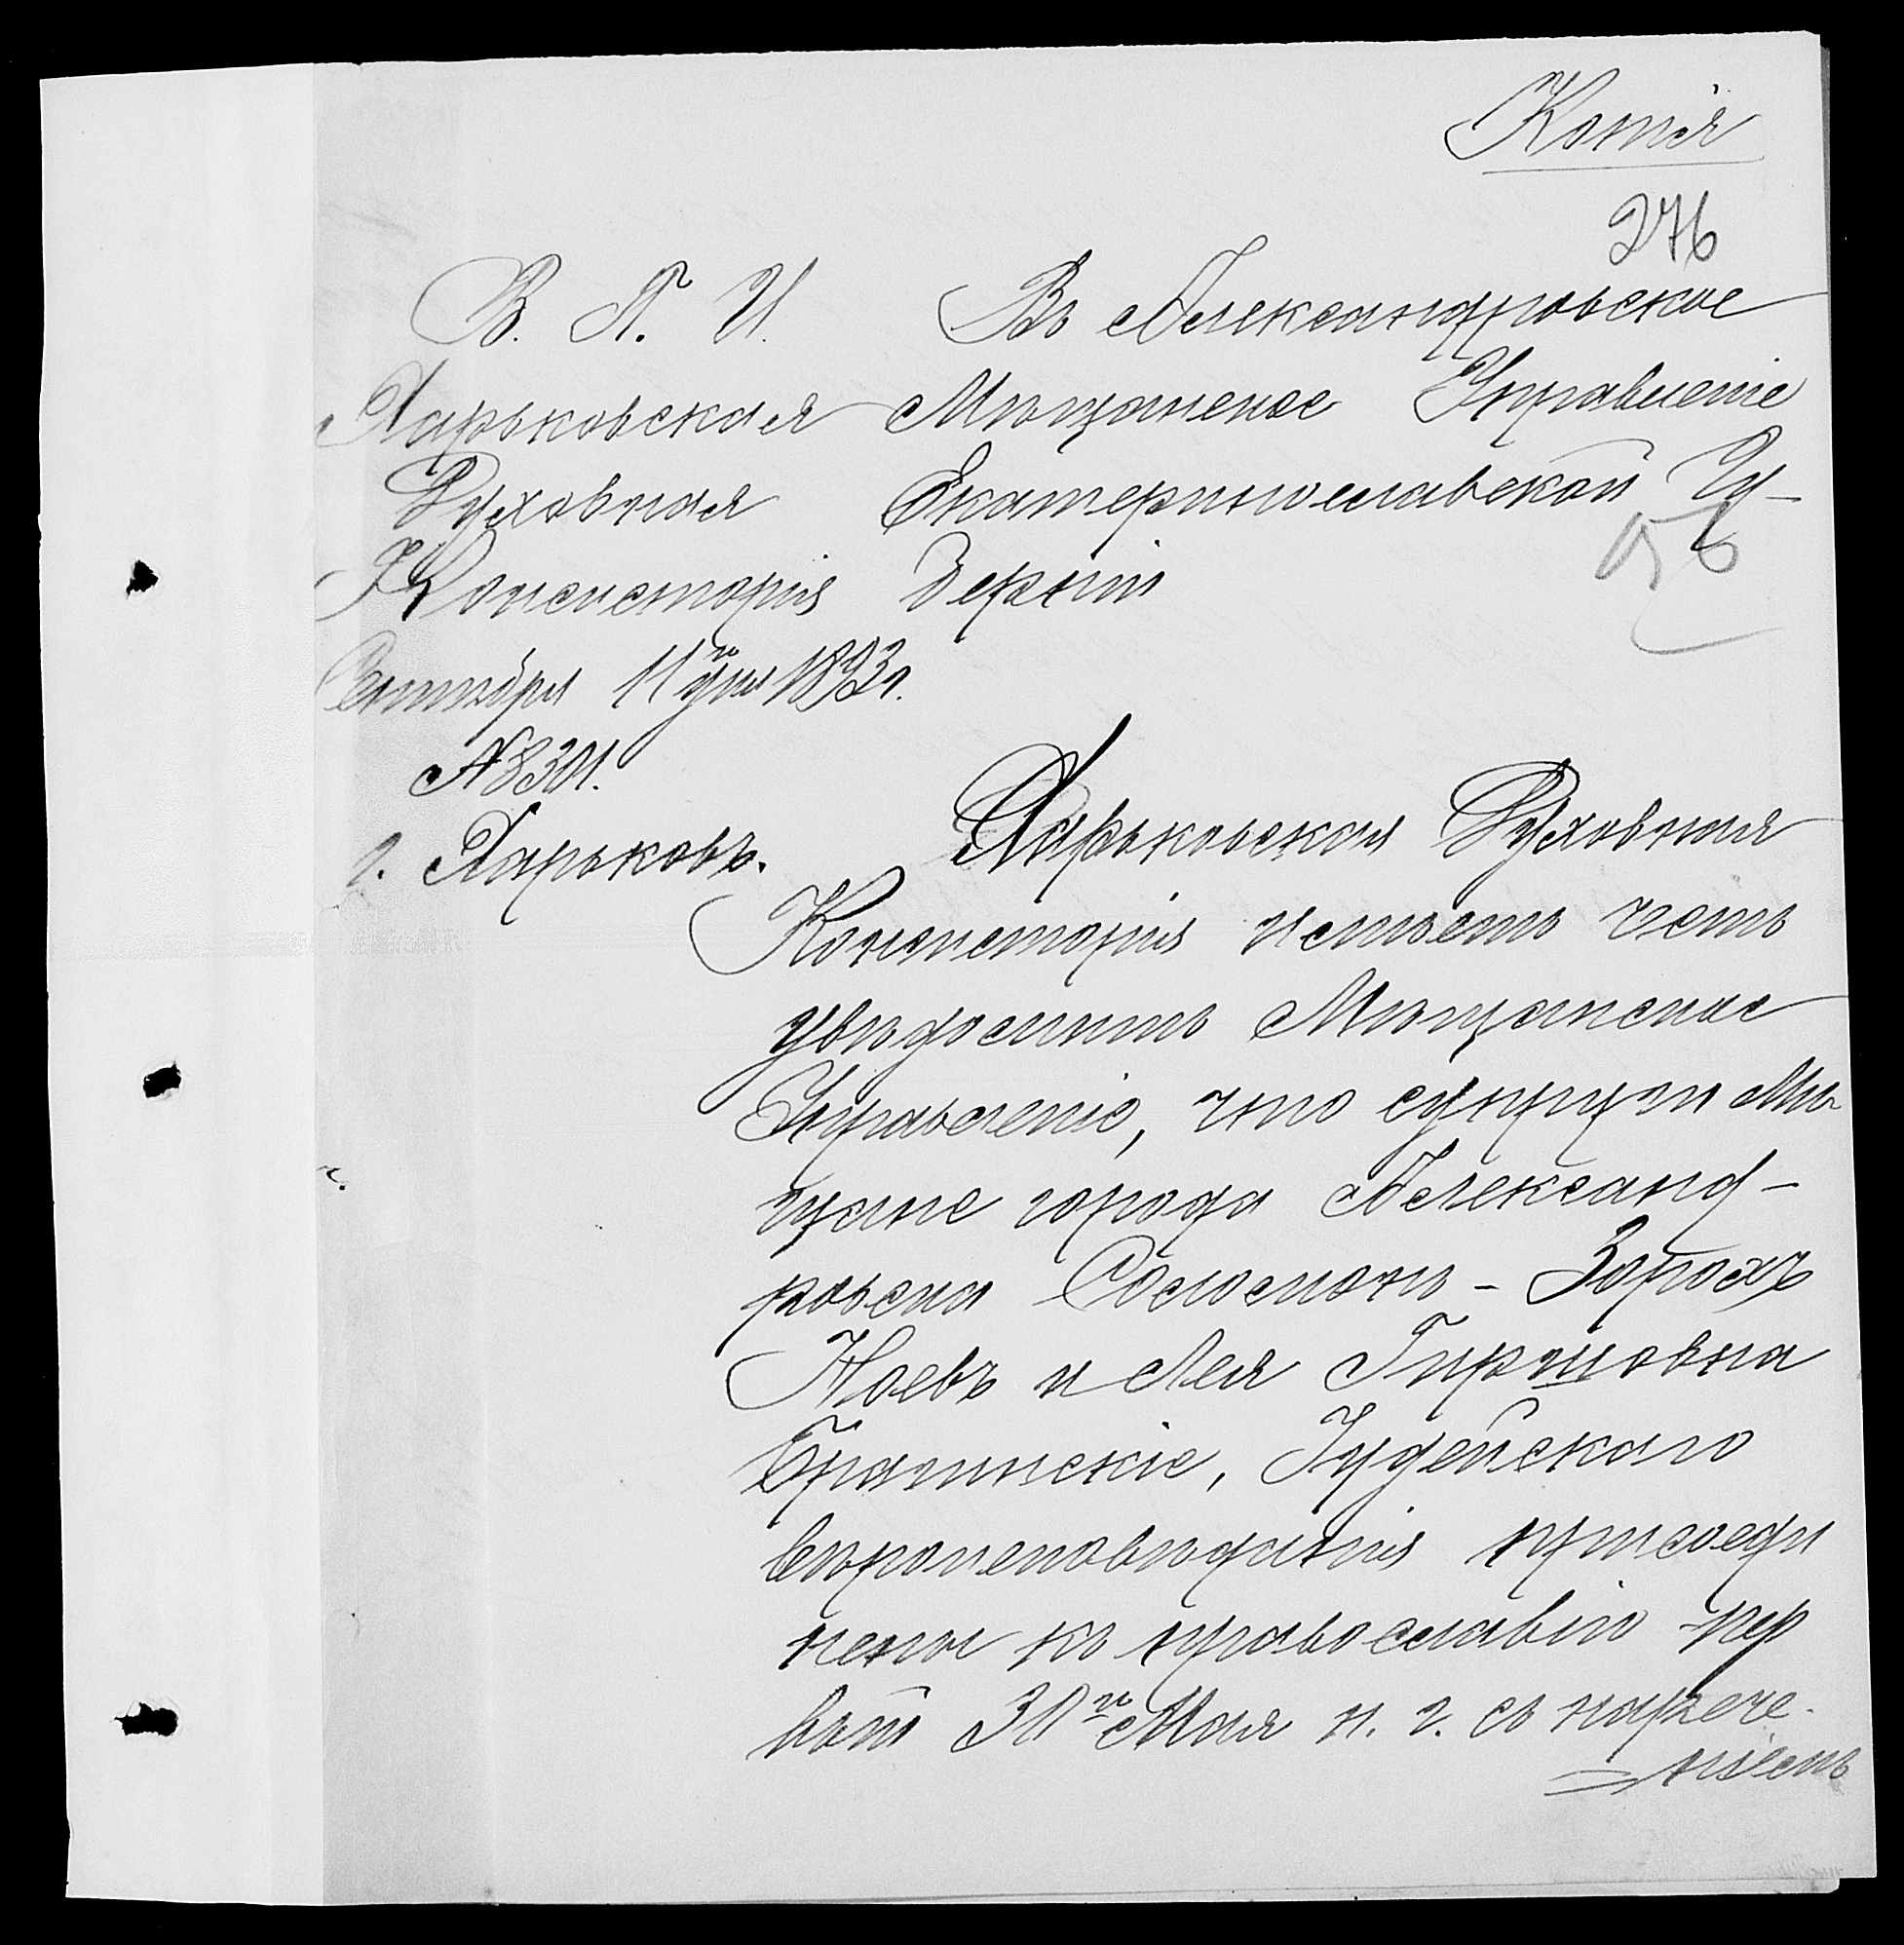 Копія
276
В. П. И.
Харьковская
Духовная
Консисторія
Сентября 11 дня 1893 г.
№ 8301.
г. Харьковъ.
Въ Александровское
Мѣщанское Управленіе
Екатеринославской Гу-
берніи
Харьковская Духовная
Консисторія симъ
увѣдомить Мѣщанское
Управленіе, что супруги Мѣ-
щане города Александ-
ровска Соломонъ-Зорохъ
Ноевъ и Лея Гиршовна
Брагинскіе, Іудейскаго
вѣроисповѣданія присоеди
нены къ православію пер
вый 30го Мая н. г. съ нарече-
ніемъ